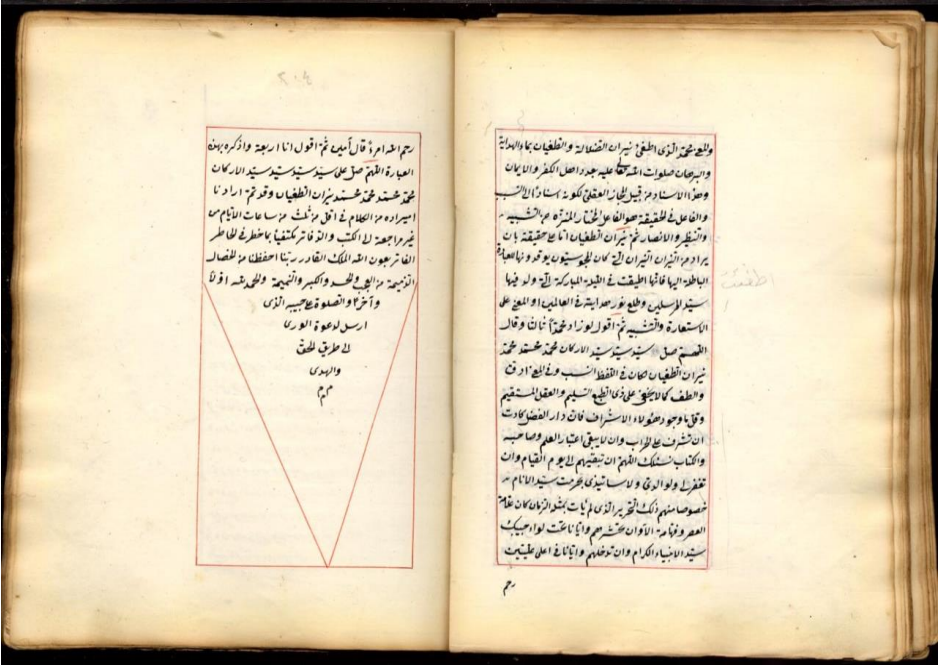 والمع محمد الذى اطفئ نيران الضلالة والطغيان بماء الهداية
والبرهان صلوات الله تعالى عليه جدد اهل الكفر والايمان
وهذا الاسناد من قبيل المجاز العقلى لكونه اسنادا الى السبب
والفاعل فى الحقيقة هو الفاعل المختار المنزه عن الشبيه
والنظير والانصار ثم نيران الطغيان اما على حقيقة بان
يراد من النيران النيران التى كان المجوسيون يوقدونها للعبادة
الباطلة اليها فانها اطفيت فى الليلة المباركة التى ولد فيها
سيد المرسلين وطلع نور هدايته فى العالمين او المع على
الاستعارة والتشبيه ثم اقول لو زاد محمدا ثالثا وقال
اللهم صل سيد سيد سيد الاركان محمد محمد محمد
نيران الطغيان لكان فى اللفظ انسب وفى المع ادق
والطف كما لا يخفى على ذى الطبع السليم والعقل المستقيم
وقل ما وجود هؤلاء الاشراف فان دار الفضل كادت
ان تشرف على الخراب وان لا يبقى اعتبار العلم وصاحبه
والكتاب نسئلك اللهم ان تبقيهم الى يوم القيام وان
تغفر لى ولوالدى ولاساتيذى بحرمت سيد الانام
خصوصا منهم ذلك النحرير الذى لم يات بمثله الزمان كان علامة
العصر وفهامة الآوان تحشرهم وايانا تحت لواء حبيبك
سيد الانبياء الكرام وان تدخلهم وايانا فى اعلى عليين
رحم
٢٠٤
رحم الله امرأ قال آمين ثم اقول انا اربعة واذكره بهذه
العبارة اللهم صل على سيد سيد سيد سيد الاركان
محمد محمد محمد محمد نيران الطغيان وقد تم ما اردنا
ايراده من الكلام فى اقل من ثلث من ساعات الأيام من
غير مراجعة الى الكتب والدفاتر مكتفيا بما خطر فى الخاطر
الفاتر بعون الله الملك القادر ربنا احفظنا من الخصال
الذميمة من العجب والحسد والكبر والنميمة والحمد لله اولاً
وآخرا والصلوة على حبيبه الذى
ارسل لدعوة الورى
الى طريق الحق
والهدى
م م م